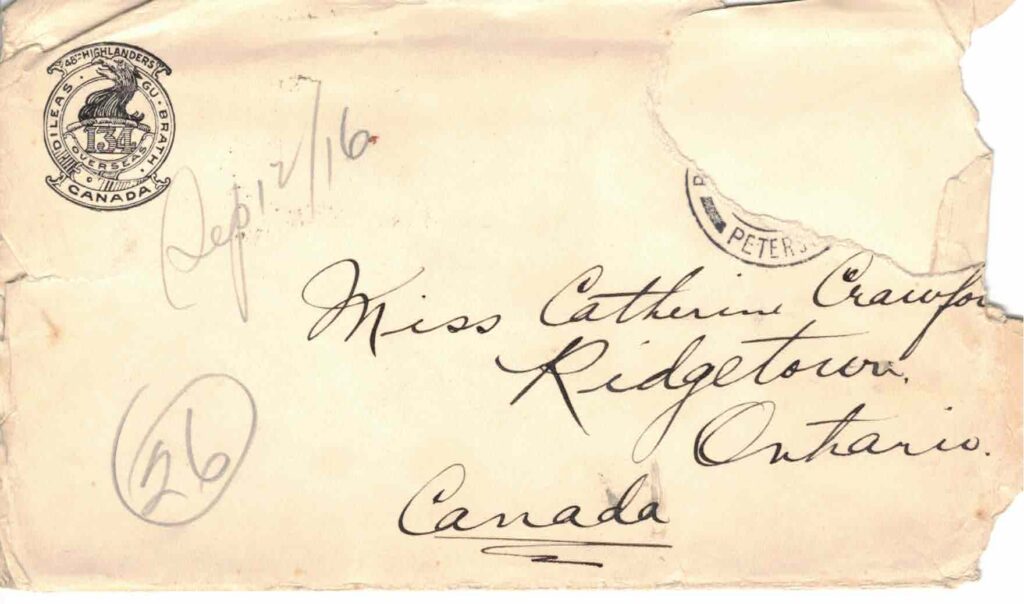 48TH HIGHLANDERS
DILEAS GU BRATH
134
OVERSEAS
CANADA
Sep 12/16
PETERS
Miss Catherine Crawfor
Ridgetown.
Ontario.
Canada
26